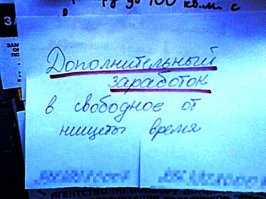 до 100 кв.м. с
3
Дополнительный
заработок
в свободное от
нищеты время